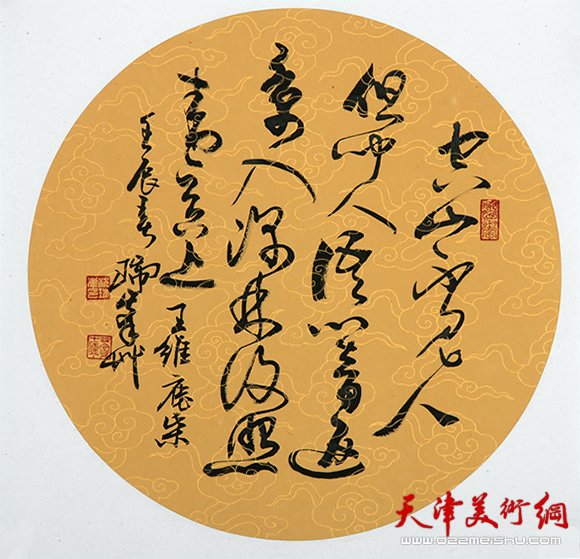 空山不見人
但聞人語響返
景入深林復照
青苔上 王維鹿柴
壬辰春
天津美術網
www.022meishu.com